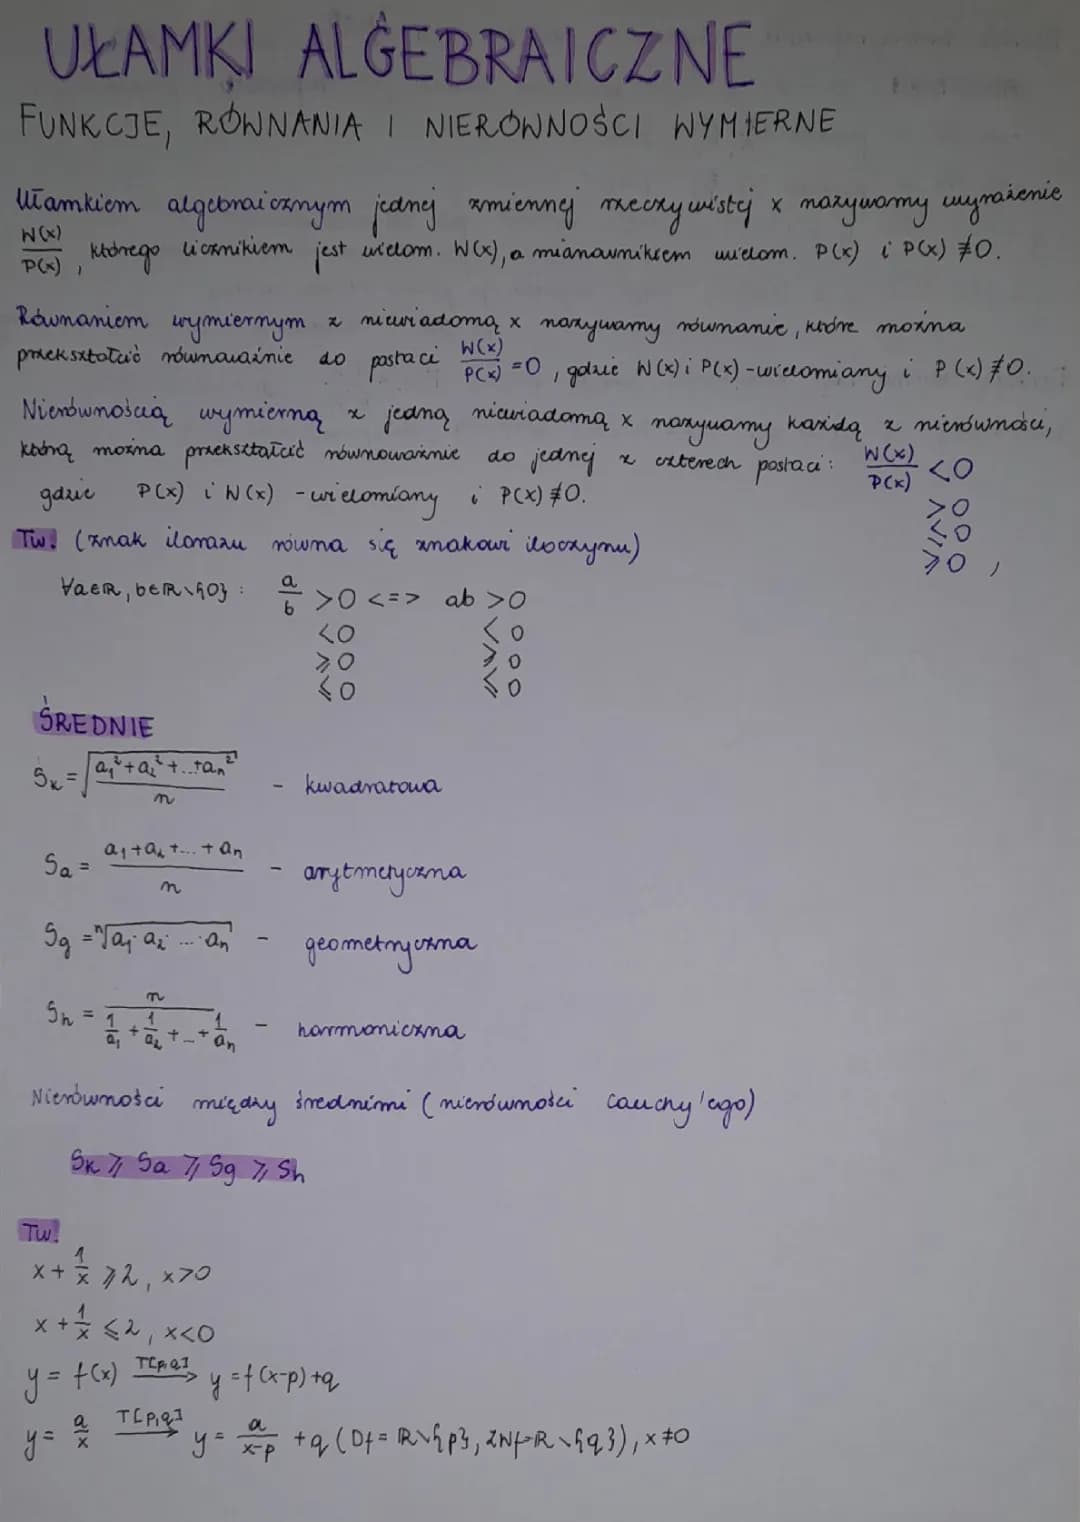 UŁAMKI ALGEBRAICZNE
FUNKCJE, RÓWNANIA I NIERÓWNOŚCI WYMIERNE
Ułamkiem algebraicznym jednej zmiennej rzeczywistej x nazywamy wyrażenie
W(x)/P(x), którego licznikiem jest wielom. W(x), a mianownikiem wielom. P(x) i P(x) ≢ 0.
Równaniem wymiernym z niewiadomą x nazywamy równanie, które można
przekształcić równoważnie do postaci W(x)/P(x) = 0, gdzie W(x) i P(x) - wielomiany i P(x) ≢ 0.
Nierównością wymierną z jedną niewiadomą x nazywamy każdą z nierówności,
którą można przekształcić równoważnie do jednej z czterech postaci: W(x)/P(x) < 0
> 0
≤ 0
≥ 0,
gdzie P(x) i W(x) - wielomiany i P(x) ≢ 0.
Tw! (znak ilorazu równa się znakowi iloczynu)
∀a∈R, b∈R\{0}: a/b > 0 <=> ab > 0
< 0 < 0
≥ 0 ≥ 0
≤ 0 ≤ 0
ŚREDNIE
Sk = √((a₁² + a₂² + ... + aₙ²)/n) - kwadratowa
Sa = (a₁ + a₂ + ... + aₙ)/n - arytmetyczna
Sg = ⁿ√(a₁ · a₂ · ... · aₙ) - geometryczna
Sh = n/(1/a₁ + 1/a₂ + ... + 1/aₙ) - harmoniczna
Nierówności między średnimi (nierówności Cauchy'ego)
Sk ≥ Sa ≥ Sg ≥ Sh
Tw!
x + 1/x ≥ 2, x > 0
x + 1/x ≤ 2, x < 0
y = f(x) T[p,q]→ y = f(x-p) + q
y = a/x T[p,q]→ y = a/(x-p) + q (Df = R\{p}, ZWf = R\{q}), x ≠ 0